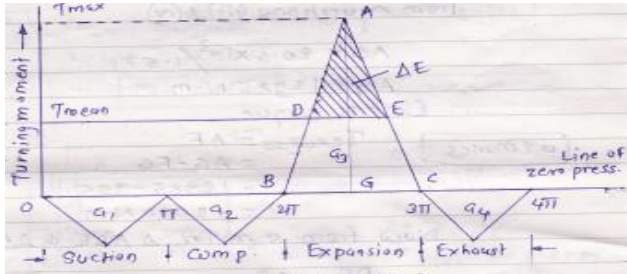 Tmax
A
ΔE
Turning moment
Tmean
D
E
a3
Line of
zero press.
B
G
C
0
a1
π
a2
2π
3π
a4
4π
Suction
Comp.
Expansion
Exhaust